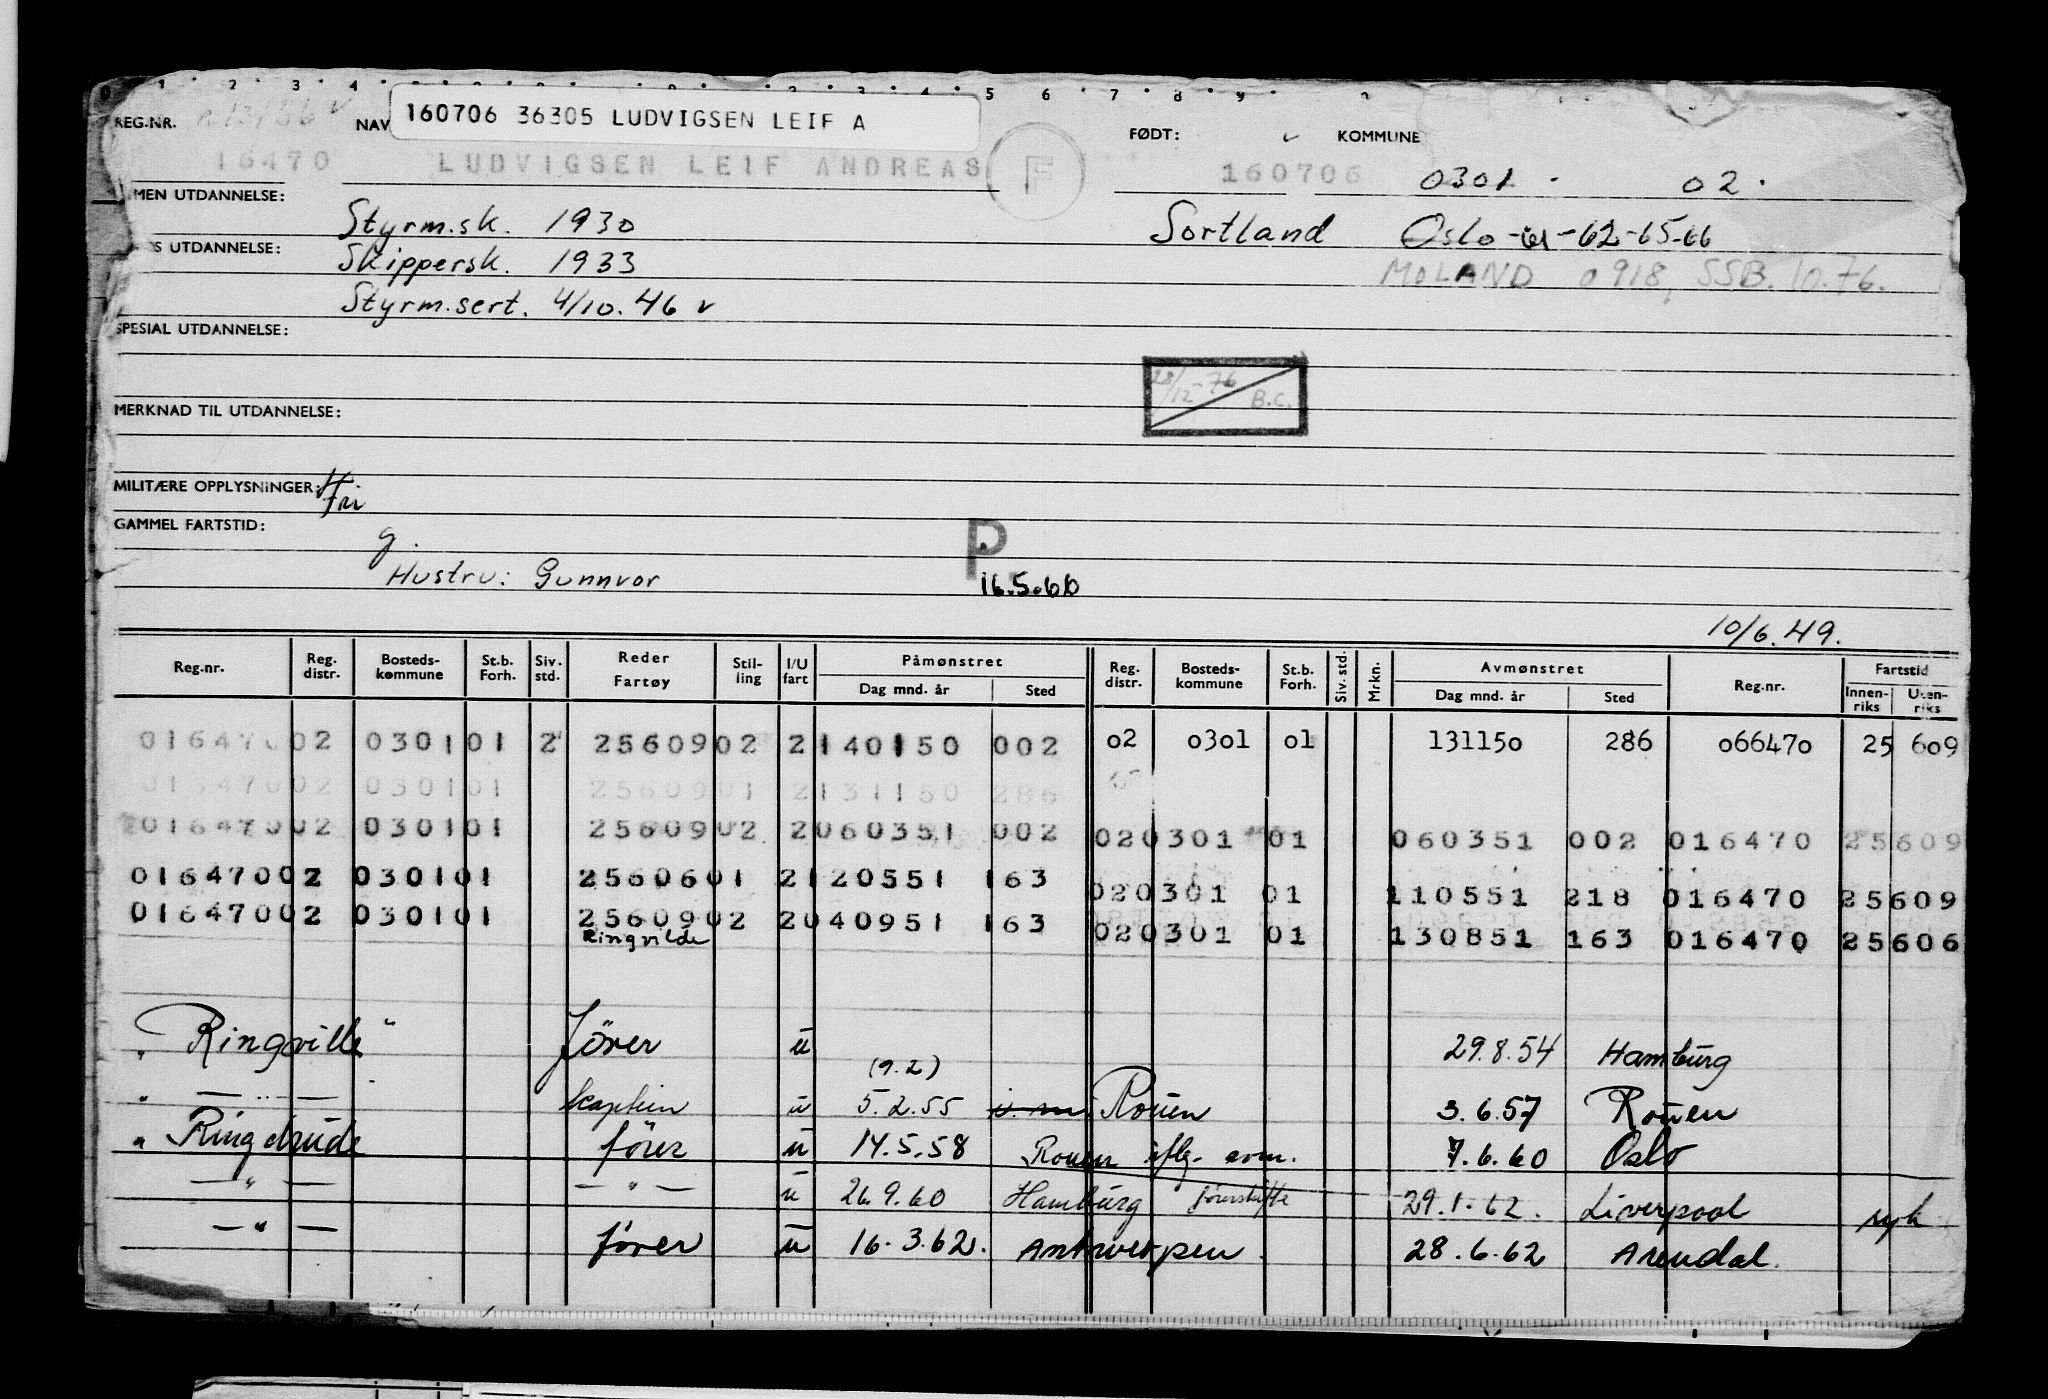 1 2 3 4 2 3 4 5 6 7 8 9
160706 36305 LUDVIGSEN LEIF A
REG.NR. NAV FØDT: KOMMUNE
16470 LUDVIGSEN LEIF ANDREAS F 160706 0301 02
MEN UTDANNELSE:
Styrm.sk. 1930 Sortland Oslo-61-62-65-66
S UTDANNELSE: Skippersk. 1933
MOLAND 0918, SSB. 10.76.
Styrm.sert. 4/10.46 v
SPESIAL UTDANNELSE:
28/12-76 B.C.
MERKNAD TIL UTDANNELSE:
MILITÆRE OPPLYSNINGER:
GAMMEL FARTSTID:
g. P
Hustru: Gunnvor 16.5.60
10/6.49.
Reg.nr. Reg. distr. Bosteds-kommune St.b. Forh. Siv. std. Reder Fartøy Stil-ling I/U fart Påmønstret Dag mnd. år Sted Reg. distr. Bosteds-kommune St.b. Forh. Siv. std. Mrkn. Avmønstret Dag mnd. år Sted Reg.nr. Fartstid Innen-riks Uten-riks
01647002 030101 2 2560902 2140150 002 02 0301 01 131150 286 066470 25 609
01647002 030101 2560901 2131150 286
01647002 030101 2560902 2060351 002 020301 01 060351 002 016470 25609
01647002 030101 2560601 2120551 163 020301 01 110551 218 016470 25609
01647002 030101 2560902 2040951 163 020301 01 130851 163 016470 25606
Ringvilde
"Ringville" fører u 29.8.54 Hamburg
(9.2)
" — " — kaptein u 5.2.55 Rouen 3.6.57 Rouen
" Ringdrude fører u 14.5.58 Rouen iflg. avm. 7.6.60 Oslo
— " — — " — u 26.9.60 Hamburg førerskifte 29.1.62. Liverpool syk
— " — fører u 16.3.62. Antwerpen. 28.6.62 Arendal.